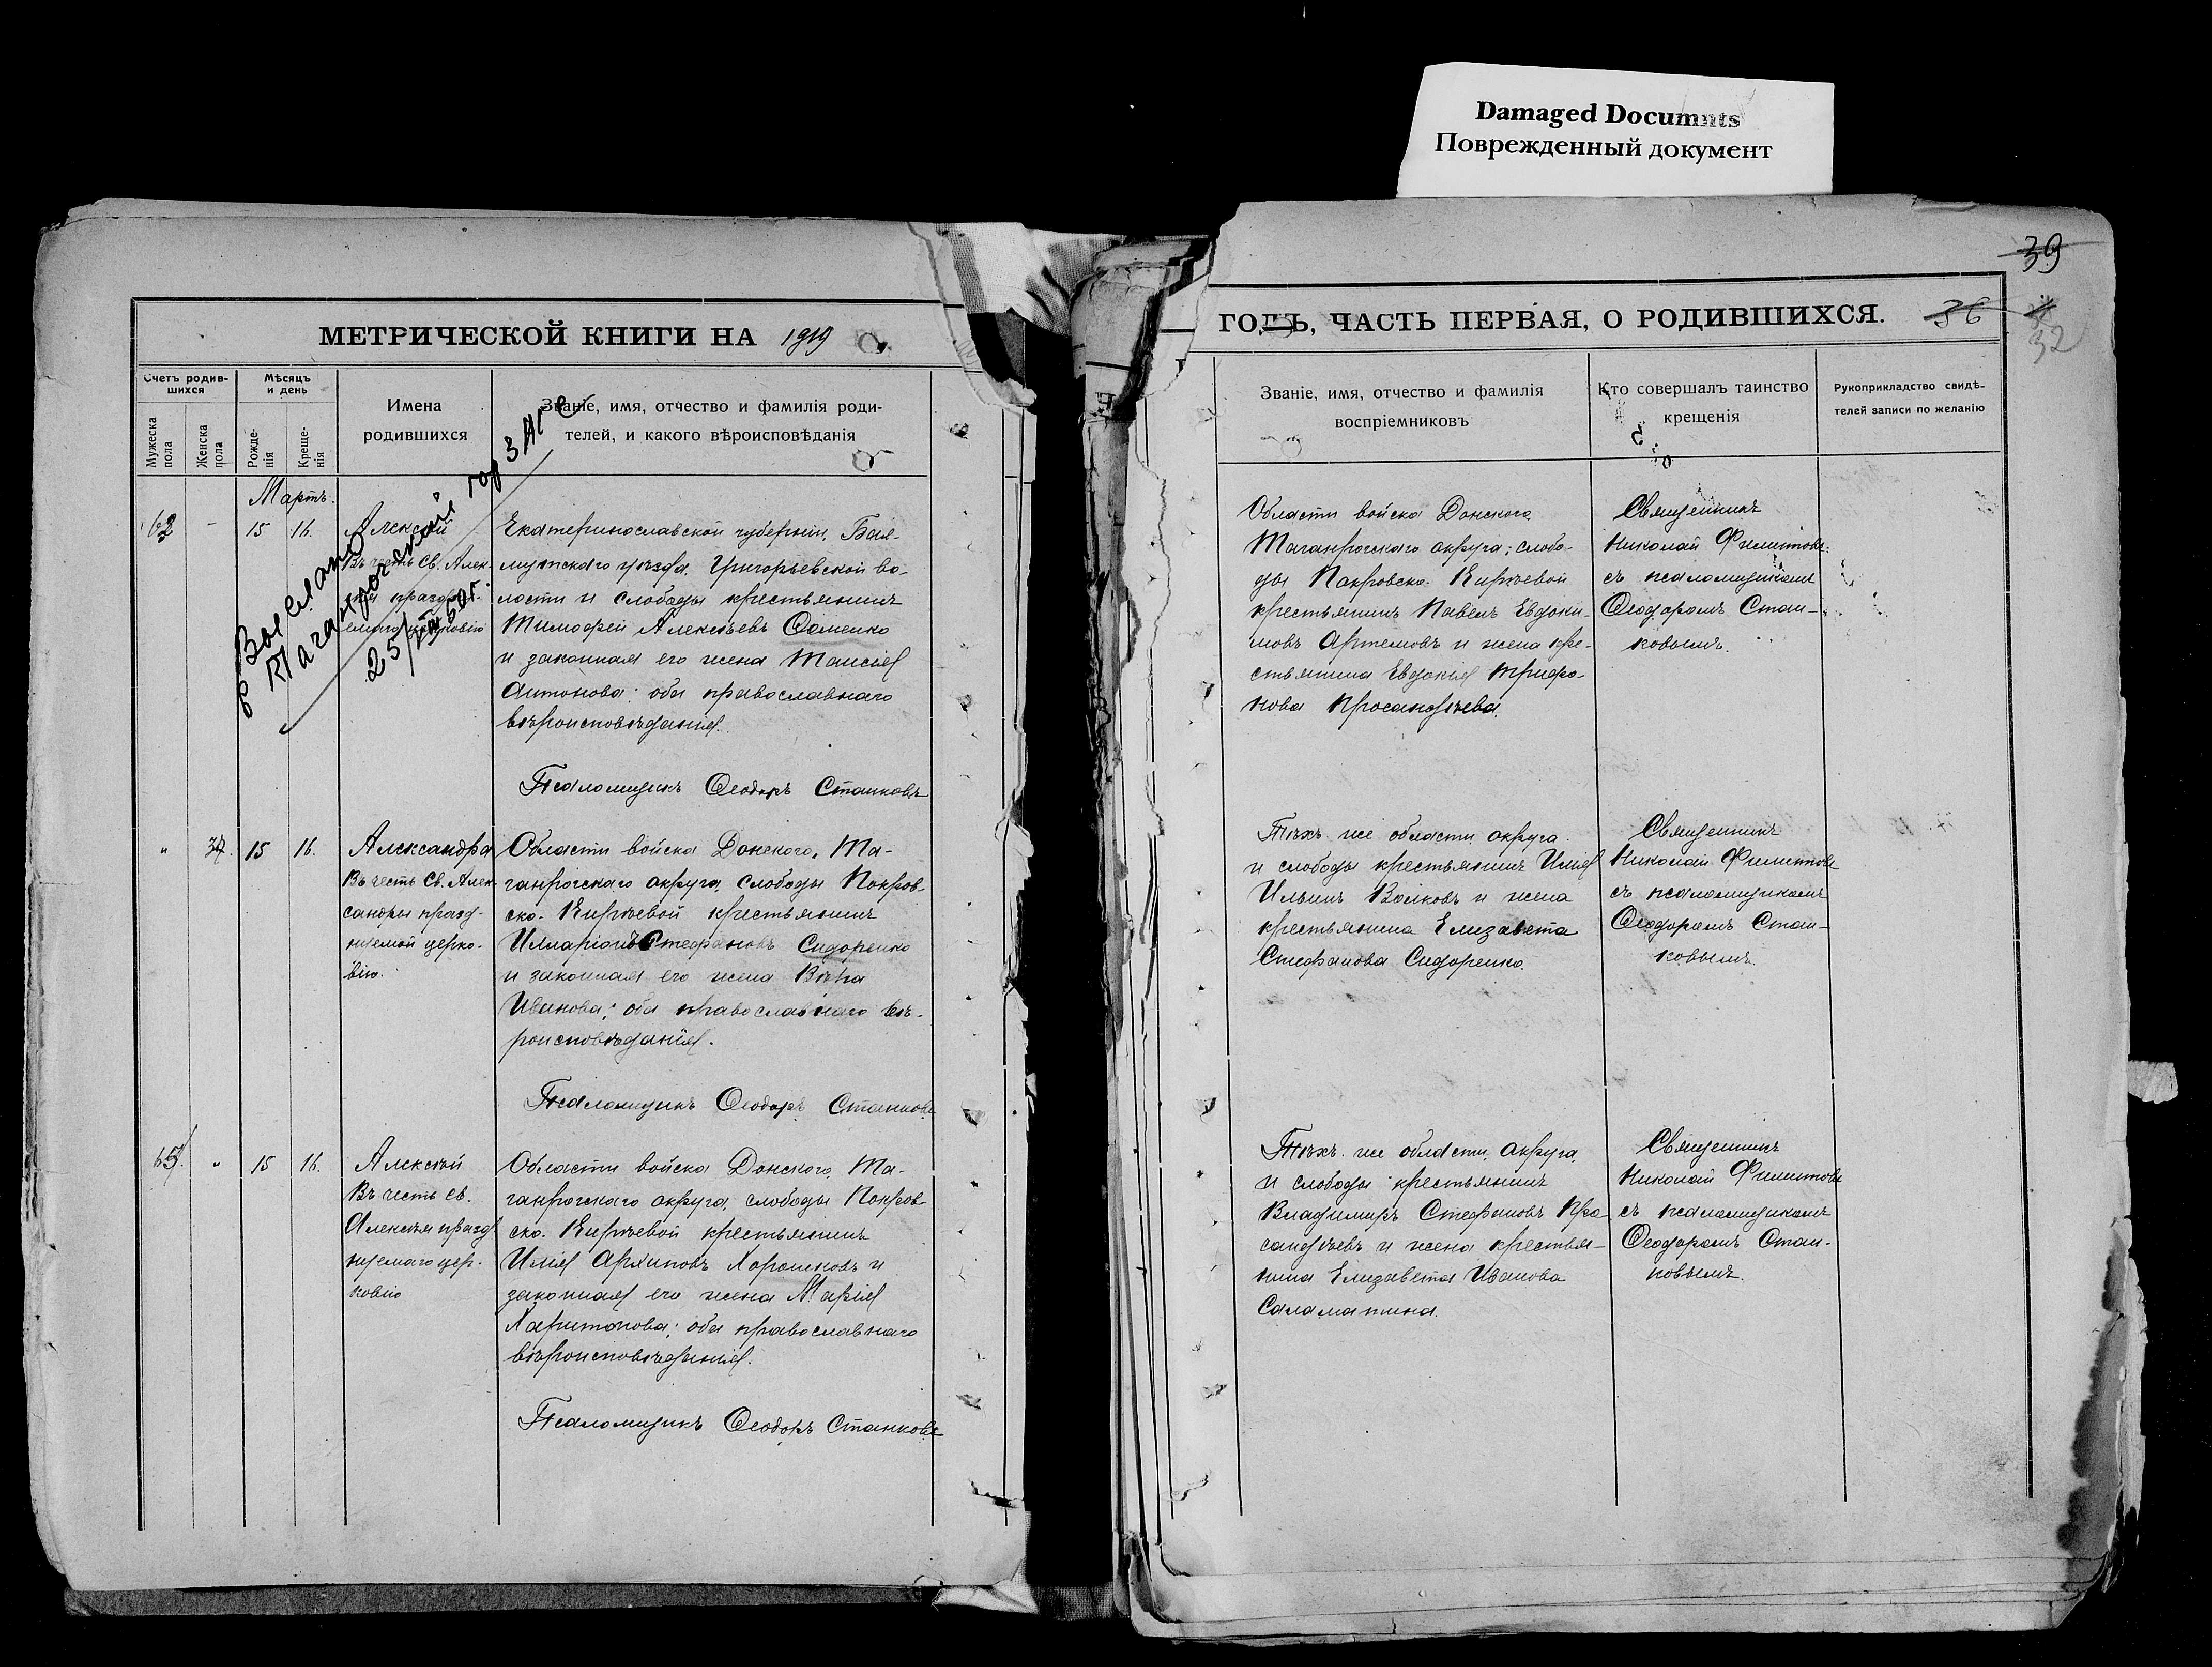 Damaged Documnts
Поврежденный документ
39
МЕТРИЧЕСКОЙ КНИГИ НА 1919
ГОДЪ, ЧАСТЬ ПЕРВАЯ, О РОДИВШИХСЯ.
36
32
Счетъ родив-
шихся
Мужеска
пола
Женска
пола
Мѣсяцъ
и день
Рожде-
нія
Креще-
нія
Имена
родившихся
Званіе, имя, отчество и фамилія роди-
телей, и какого вѣроисповѣданія
Званіе, имя, отчество и фамилія
воспріемниковъ
Кто совершалъ таинство
крещенія
Рукоприкладство свидѣ-
телей записи по желанію
Выслано
в Таганрогский гор ЗАГС
Мартъ.
62 - 15 16.
Алексѣй
Въ честь Св. Алек-
Екатеринославской губерніи, Бах-
мутскаго уѣзда, Григорьевской во-
лости и слободы крестьянинъ
Тимофей Алексѣевъ Ѳоменко
и законная его жена Таисія
Антонова; оба православнаго
вѣроисповѣданія.
Псаломщикъ Ѳеодоръ Станковъ
Области войска Донского,
Таганрогскаго округа, слобо-
ды Покровско-Кирѣевой
крестьянинъ Павелъ Евдоки-
мовъ Артемовъ и жена кре-
стьянина Евдокія Трифо-
нова Просандѣева.
Священникъ
Николай Филиповъ
съ псаломщикомъ
Ѳеодоромъ Стан-
ковымъ.
" 37. 15 16.
Александра
Въ честь Св. Алек-
сандры празд-
нуемой церко-
вію.
Области войска Донского, Та-
ганрогскаго округа, слободы Покров-
ско-Кирѣевой крестьянинъ
Илларіонъ Стефановъ Сидоренко
и законная его жена Вѣра
Иванова; оба православнаго вѣ-
роисповѣданія.
Псаломщикъ Ѳеодоръ Станковъ
Тѣхъ же области, округа
и слободы крестьянинъ Илія
Ильинъ Волковъ и жена
крестьянина Елизавета
Стефанова Сидоренко.
Священникъ
Николай Филиповъ
съ псаломщикомъ
Ѳеодоромъ Стан-
ковымъ.
63. " 15 16.
Алексѣй
Въ честь св.
Алексѣя празд-
нуемаго цер-
ковію
Области войска Донского, Та-
ганрогскаго округа, слободы Покров-
ско-Кирѣевой крестьянинъ
Илія Архиповъ Хорошковъ и
законная его жена Марія
Харитонова; оба православнаго
вѣроисповѣданія.
Псаломщикъ Ѳеодоръ Станковъ
Тѣхъ же области, округа,
и слободы крестьянинъ
Владимиръ Стефановъ Про-
сандѣевъ и жена крестья-
нина Елизавета Иванова
Саламатина.
Священникъ
Николай Филиповъ
съ псаломщикомъ
Ѳеодоромъ Стан-
ковымъ.